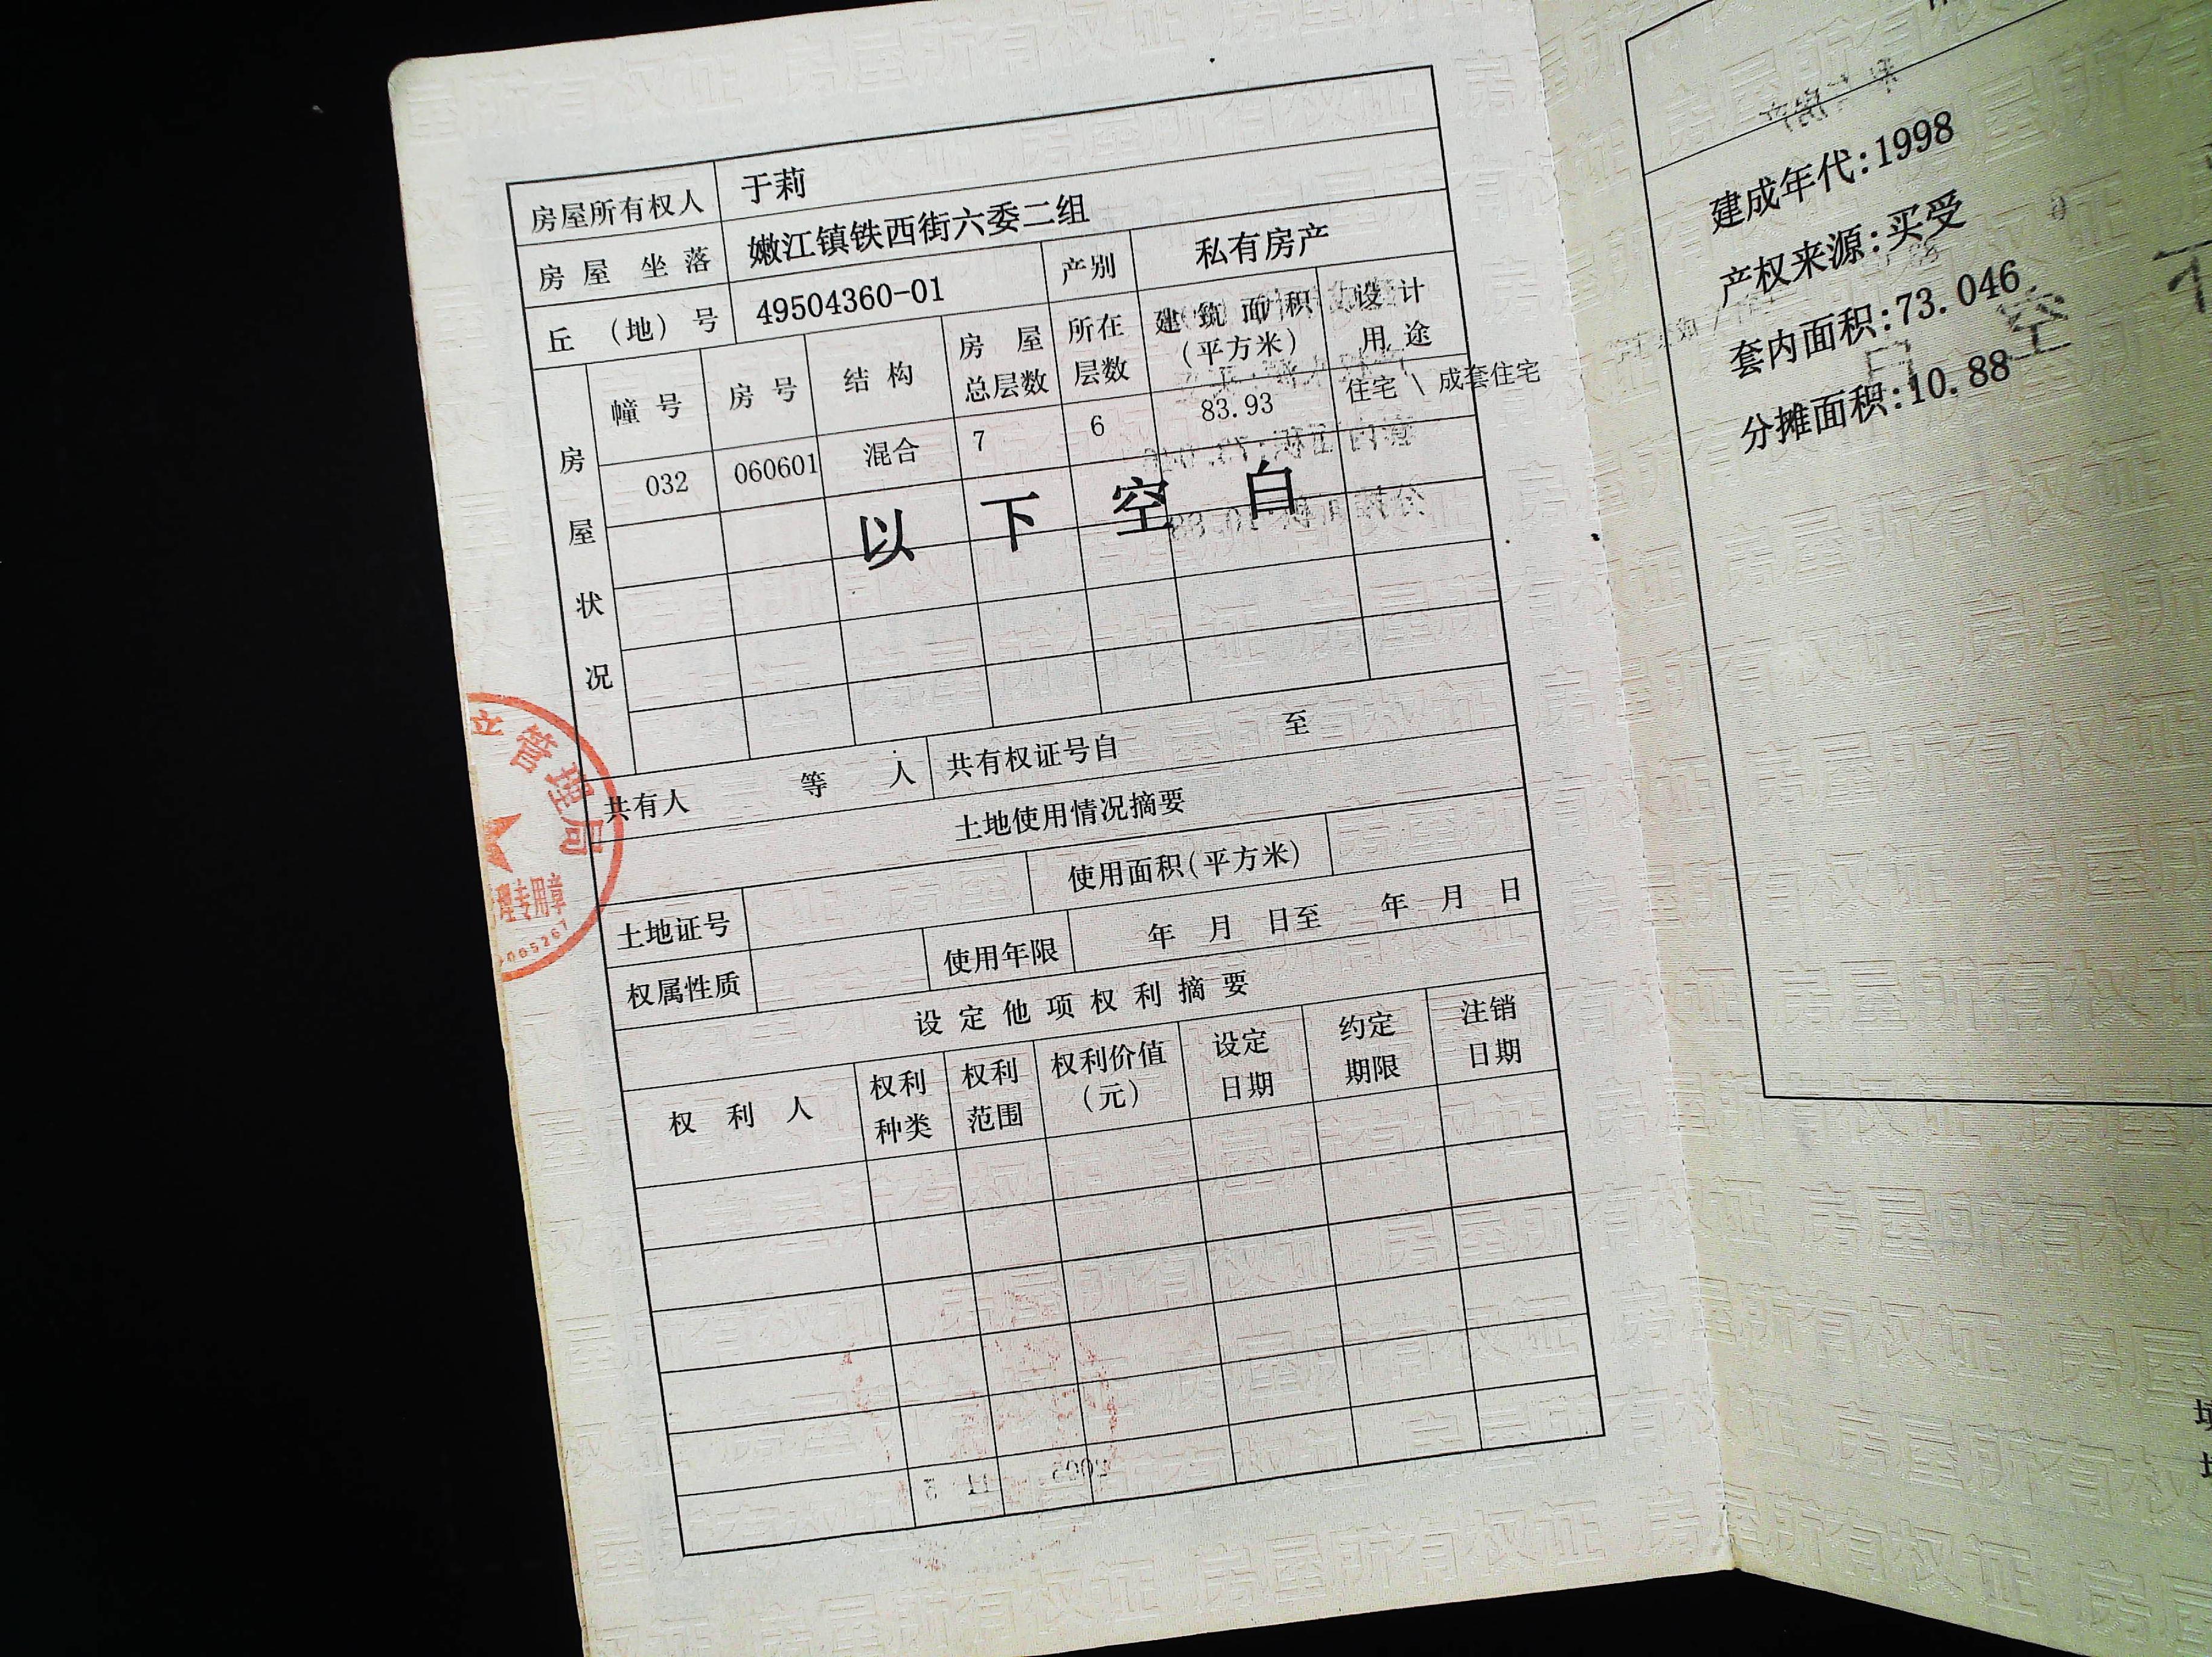 房屋所有权人 于莉
房屋坐落 嫩江镇铁西街六委二组
丘（地）号 49504360-01 产别 私有房产
房屋状况
幢号 房号 结构 房屋总层数 所在层数 建筑面积（平方米） 设计用途
032 060601 混合 7 6 83.93 住宅 \ 成套住宅
以下空白
共有人 等 人 共有权证号自 至
土地使用情况摘要
土地证号 使用面积(平方米)
权属性质 使用年限 年 月 日至 年 月 日
设定他项权利摘要
权利人 权利种类 权利范围 权利价值（元） 设定日期 约定期限 注销日期
管理局
理专用章
建成年代:1998
产权来源:买受
套内面积:73.046
分摊面积:10.88